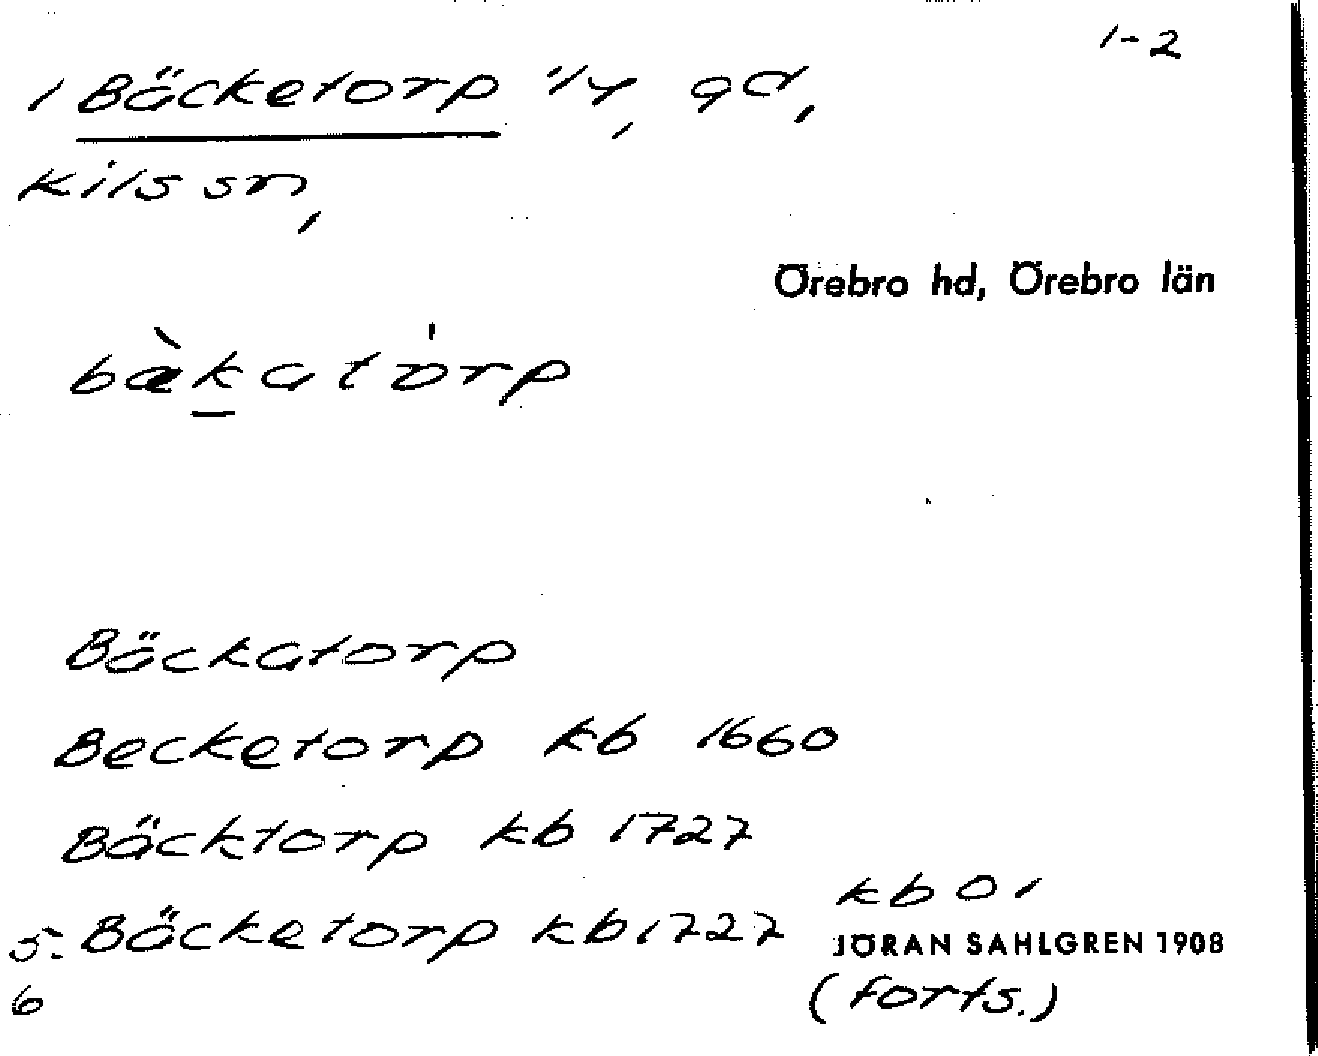 1-2
1 Bäcketorp 1/4, gd,
Kils sn,
Örebro hd, Örebro län
bæ̀katȯrp
Bäckatorp
Becketorp kb 1660
Bäcktorp kb 1727
kb 01
5. Bäcketorp kb 1727
JÖRAN SAHLGREN 1908
6
(forts.)